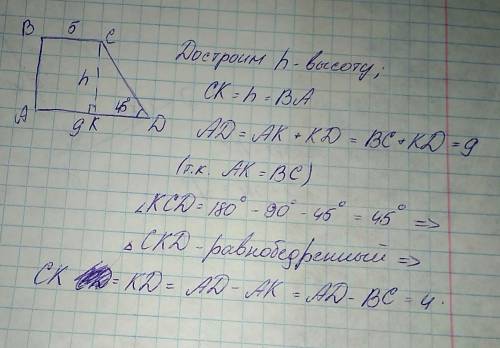 B 5 C
h
A 9 K 45° D
Достроим h - высоту;
CK = h = BA
AD = AK + KD = BC + KD = 9
(т.к. AK = BC)
∠KCD = 180° - 90° - 45° = 45° =>
△CKD - равнобедренный =>
CK = KD = AD - AK = AD - BC = 4.